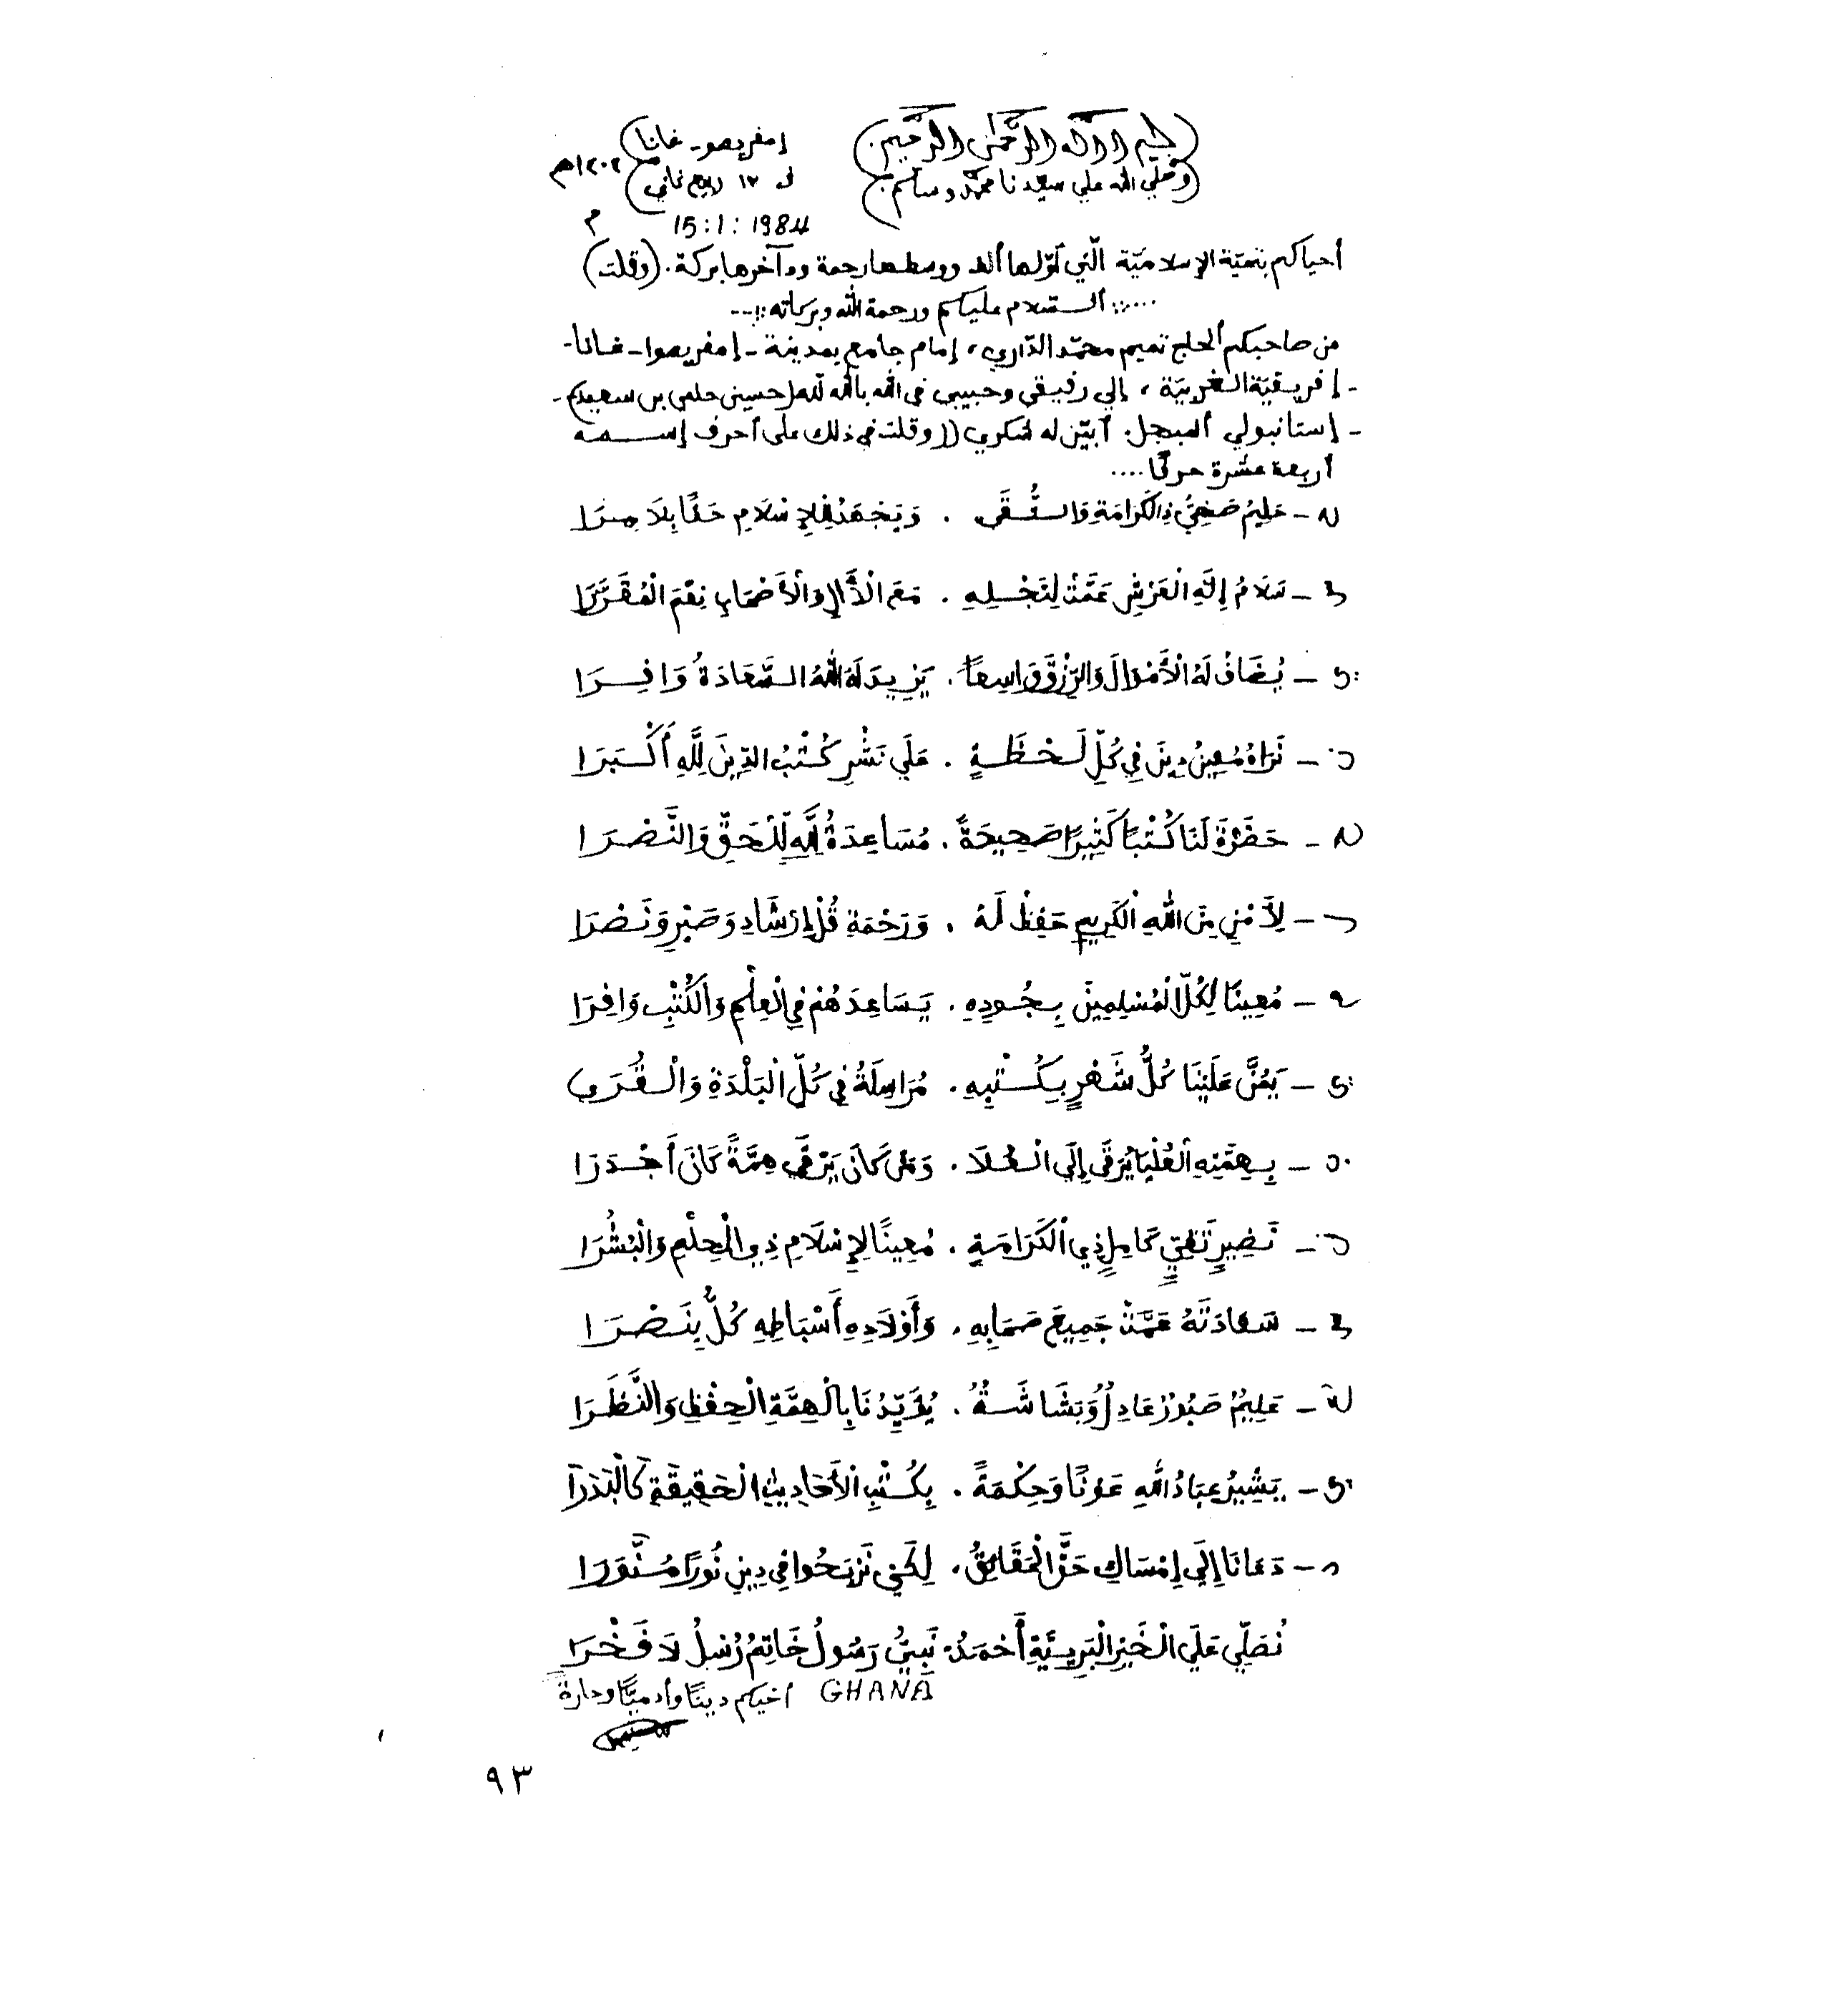 (بسم الله الرحمن الرحيم)
إمفريصو - غانا
(وصلي الله علي سيدنا محمد وسلم)
في ١٢ ربيع ثاني
م 15:1:1984
أحياكم بتحيّة الإسلاميّة الّتي أوّلها ألف ووسطها رحمة وءآخرها بركة. (وقلت)
.....:: ألسّلام عليكم ورحمة الله وبركاته ::--
من صاحبكم ألحاج تميم محمّد الدّاري، إمام جامع بمدينة - إمفريصوا - غانا -
- إفريقيّة الغربيّة، إلي رفيقي وحبيبي في الله بالله لله حسين حلمي بن سعيد -
- إستانبولي ألمبجل. أبيّن له شكري ((وقلت في ذلك علي أحرف إسمه
أربعة عشرة حرفًا ....
ح - حَلِيمُ صَخِيُّ ذِالْكَرَامَةِ وَالتُّقَى . وَيَجْهَدُ لِلْإِسْلَامِ حَقًا بِلَا مِرَا
س - سَلَامُ إِلَهِ الْعَرْشِ عَمَّتْ لِنَجْلِهِ . مَعَ الْأَلِ وَالْأَصْحَابِ نِعْمَ الْمُقَرَّرَا
ي - يُضَافُ لَهُ الْأَمْوَالَ وَالرِّزْقَ وَاسِعًا . يَزِيدَ لَهُ اللهُ السَّعَادَةُ وَافِرَا
ن - نَرَاهُ مُعِينُ دِينَ فِي كُلِّ لَحْظَةٍ . عَلَي نَشْرِ كُتْبُ الدِّينَ لِلَّهِ أَكْبَرَا
ح - حَضْرَةَ لَنَا كُتْبًا كَثِيرًا صَحِيحَةً . مُسَاعِدَةُ لِلَّهِ لِلْحَقِّ وَالنَّصْرَا
ل - لِأَمْنِ مِنَ اللهِ الْكَرِيمِ حَفِظْ لَهُ . وَرَحْمَةِ قُلْ إِرْشَادِ وَصَبْرِ وَنَصْرَا
م - مُعِينًا لِكُلِّ الْمُسْلِمِينَ بِجُودِهِ . يَسَاعِدَهُمْ فِي الْعِلْمِ وَالْكُتْبِ وَافِرَا
ي - يَمُنَّ عَلَيْنَا كُلُّ شَهْرٍ بِكُتْبِهِ . مُرَاسِلَةُ فِي كُلِّ الْبَلْدَةِ وَالْقُرَي
ب - بِهِمَّتِهِ الْعُلْيَا يُرَقَى إِلَى الْعُلَا . وَمَنْ كَانَ يَرْقَى هِمَّةً كَانَ أَجْدَرَا
ن - نَصِيرٍ تَقِيٍّ كَامِلٍ ذِي الْكَرَامَةِ . مُعِينًا لِإِسْلَامِ ذِي الْحِلْمِ وَالْبُشْرَا
س - سَعَادَتَهُ عَمَّتْ جَمِيعَ صَحَابِهِ . وَأَوْلَادِهِ أَسْبَاطِهِ كُلُّ بِنَصْرَا
ع - عَلِيمُ صَبُورُ عَادِلُ وَبَشَاشَةُ . يُؤَيِّدُنَا بِالْهِمَّةِ الْحِفْظِ وَالنَّظَرَا
ي - يَبَشِّيرُ عِبَادُ اللهِ عَوْنًا وَحِكْمَةً . بِكُتْبِ الْأَحَادِيثِ الْحَقِيقَةِ كَالْبَدْرَا
د - دَعَانَا إِلَي إِمْسَاكِ حَقَّ الْحَقَائِقُ . لِكَيْ نَرْبَحُوا فِي دِينِ نُورًا مُنَّوَرَا
نُصَلِّي عَلَي الْخَيْرِ الْبَرِيئَةِ أَحْمَدُ نَبِيُّ رَسُولُ خَاتِمُ رُسْلُ لَا فَخْرَا
GHANA أخيكم دينًا وأدميًّا وحارة
٩٣